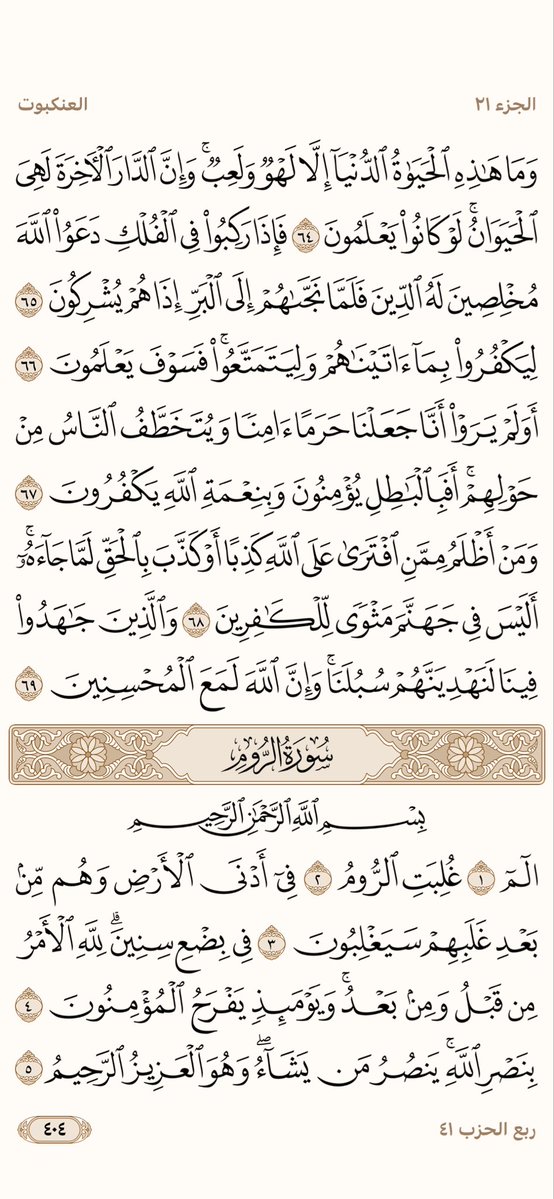 الجزء ٢١
العنكبوت
وَمَا هَٰذِهِ ٱلْحَيَوٰةُ ٱلدُّنْيَآ إِلَّا لَهْوٌ وَلَعِبٌ ۚ وَإِنَّ ٱلدَّارَ ٱلْءَاخِرَةَ لَهِىَ
ٱلْحَيَوَانُ ۚ لَوْ كَانُوا۟ يَعْلَمُونَ ٦٤ فَإِذَا رَكِبُوا۟ فِى ٱلْفُلْكِ دَعَوُا۟ ٱللَّهَ
مُخْلِصِينَ لَهُ ٱلدِّينَ فَلَمَّا نَجَّىٰهُمْ إِلَى ٱلْبَرِّ إِذَا هُمْ يُشْرِكُونَ ٦٥
لِيَكْفُرُوا۟ بِمَآ ءَاتَيْنَٰهُمْ وَلِيَتَمَتَّعُوا۟ ۖ فَسَوْفَ يَعْلَمُونَ ٦٦
أَوَلَمْ يَرَوْا۟ أَنَّا جَعَلْنَا حَرَمًا ءَامِنًا وَيُتَخَطَّفُ ٱلنَّاسُ مِنْ
حَوْلِهِمْ ۚ أَفَبِٱلْبَٰطِلِ يُؤْمِنُونَ وَبِنِعْمَةِ ٱللَّهِ يَكْفُرُونَ ٦٧
وَمَنْ أَظْلَمُ مِمَّنِ ٱفْتَرَىٰ عَلَى ٱللَّهِ كَذِبًا أَوْ كَذَّبَ بِٱلْحَقِّ لَمَّا جَآءَهُۥٓ ۚ
أَلَيْسَ فِى جَهَنَّمَ مَثْوًى لِّلْكَٰفِرِينَ ٦٨ وَٱلَّذِينَ جَٰهَدُوا۟
فِينَا لَنَهْدِيَنَّهُمْ سُبُلَنَا ۚ وَإِنَّ ٱللَّهَ لَمَعَ ٱلْمُحْسِنِينَ ٦٩
سُورَةُ الرُّومِ
بِسْمِ ٱللَّهِ ٱلرَّحْمَٰنِ ٱلرَّحِيمِ
الٓمٓ ١ غُلِبَتِ ٱلرُّومُ ٢ فِىٓ أَدْنَى ٱلْأَرْضِ وَهُم مِّنۢ
بَعْدِ غَلَبِهِمْ سَيَغْلِبُونَ ٣ فِى بِضْعِ سِنِينَ ۗ لِلَّهِ ٱلْأَمْرُ
مِن قَبْلُ وَمِنۢ بَعْدُ ۚ وَيَوْمَئِذٍ يَفْرَحُ ٱلْمُؤْمِنُونَ ٤
بِنَصْرِ ٱللَّهِ ۚ يَنصُرُ مَن يَشَآءُ ۖ وَهُوَ ٱلْعَزِيزُ ٱلرَّحِيمُ ٥
ربع الحزب ٤١
٤٠٤